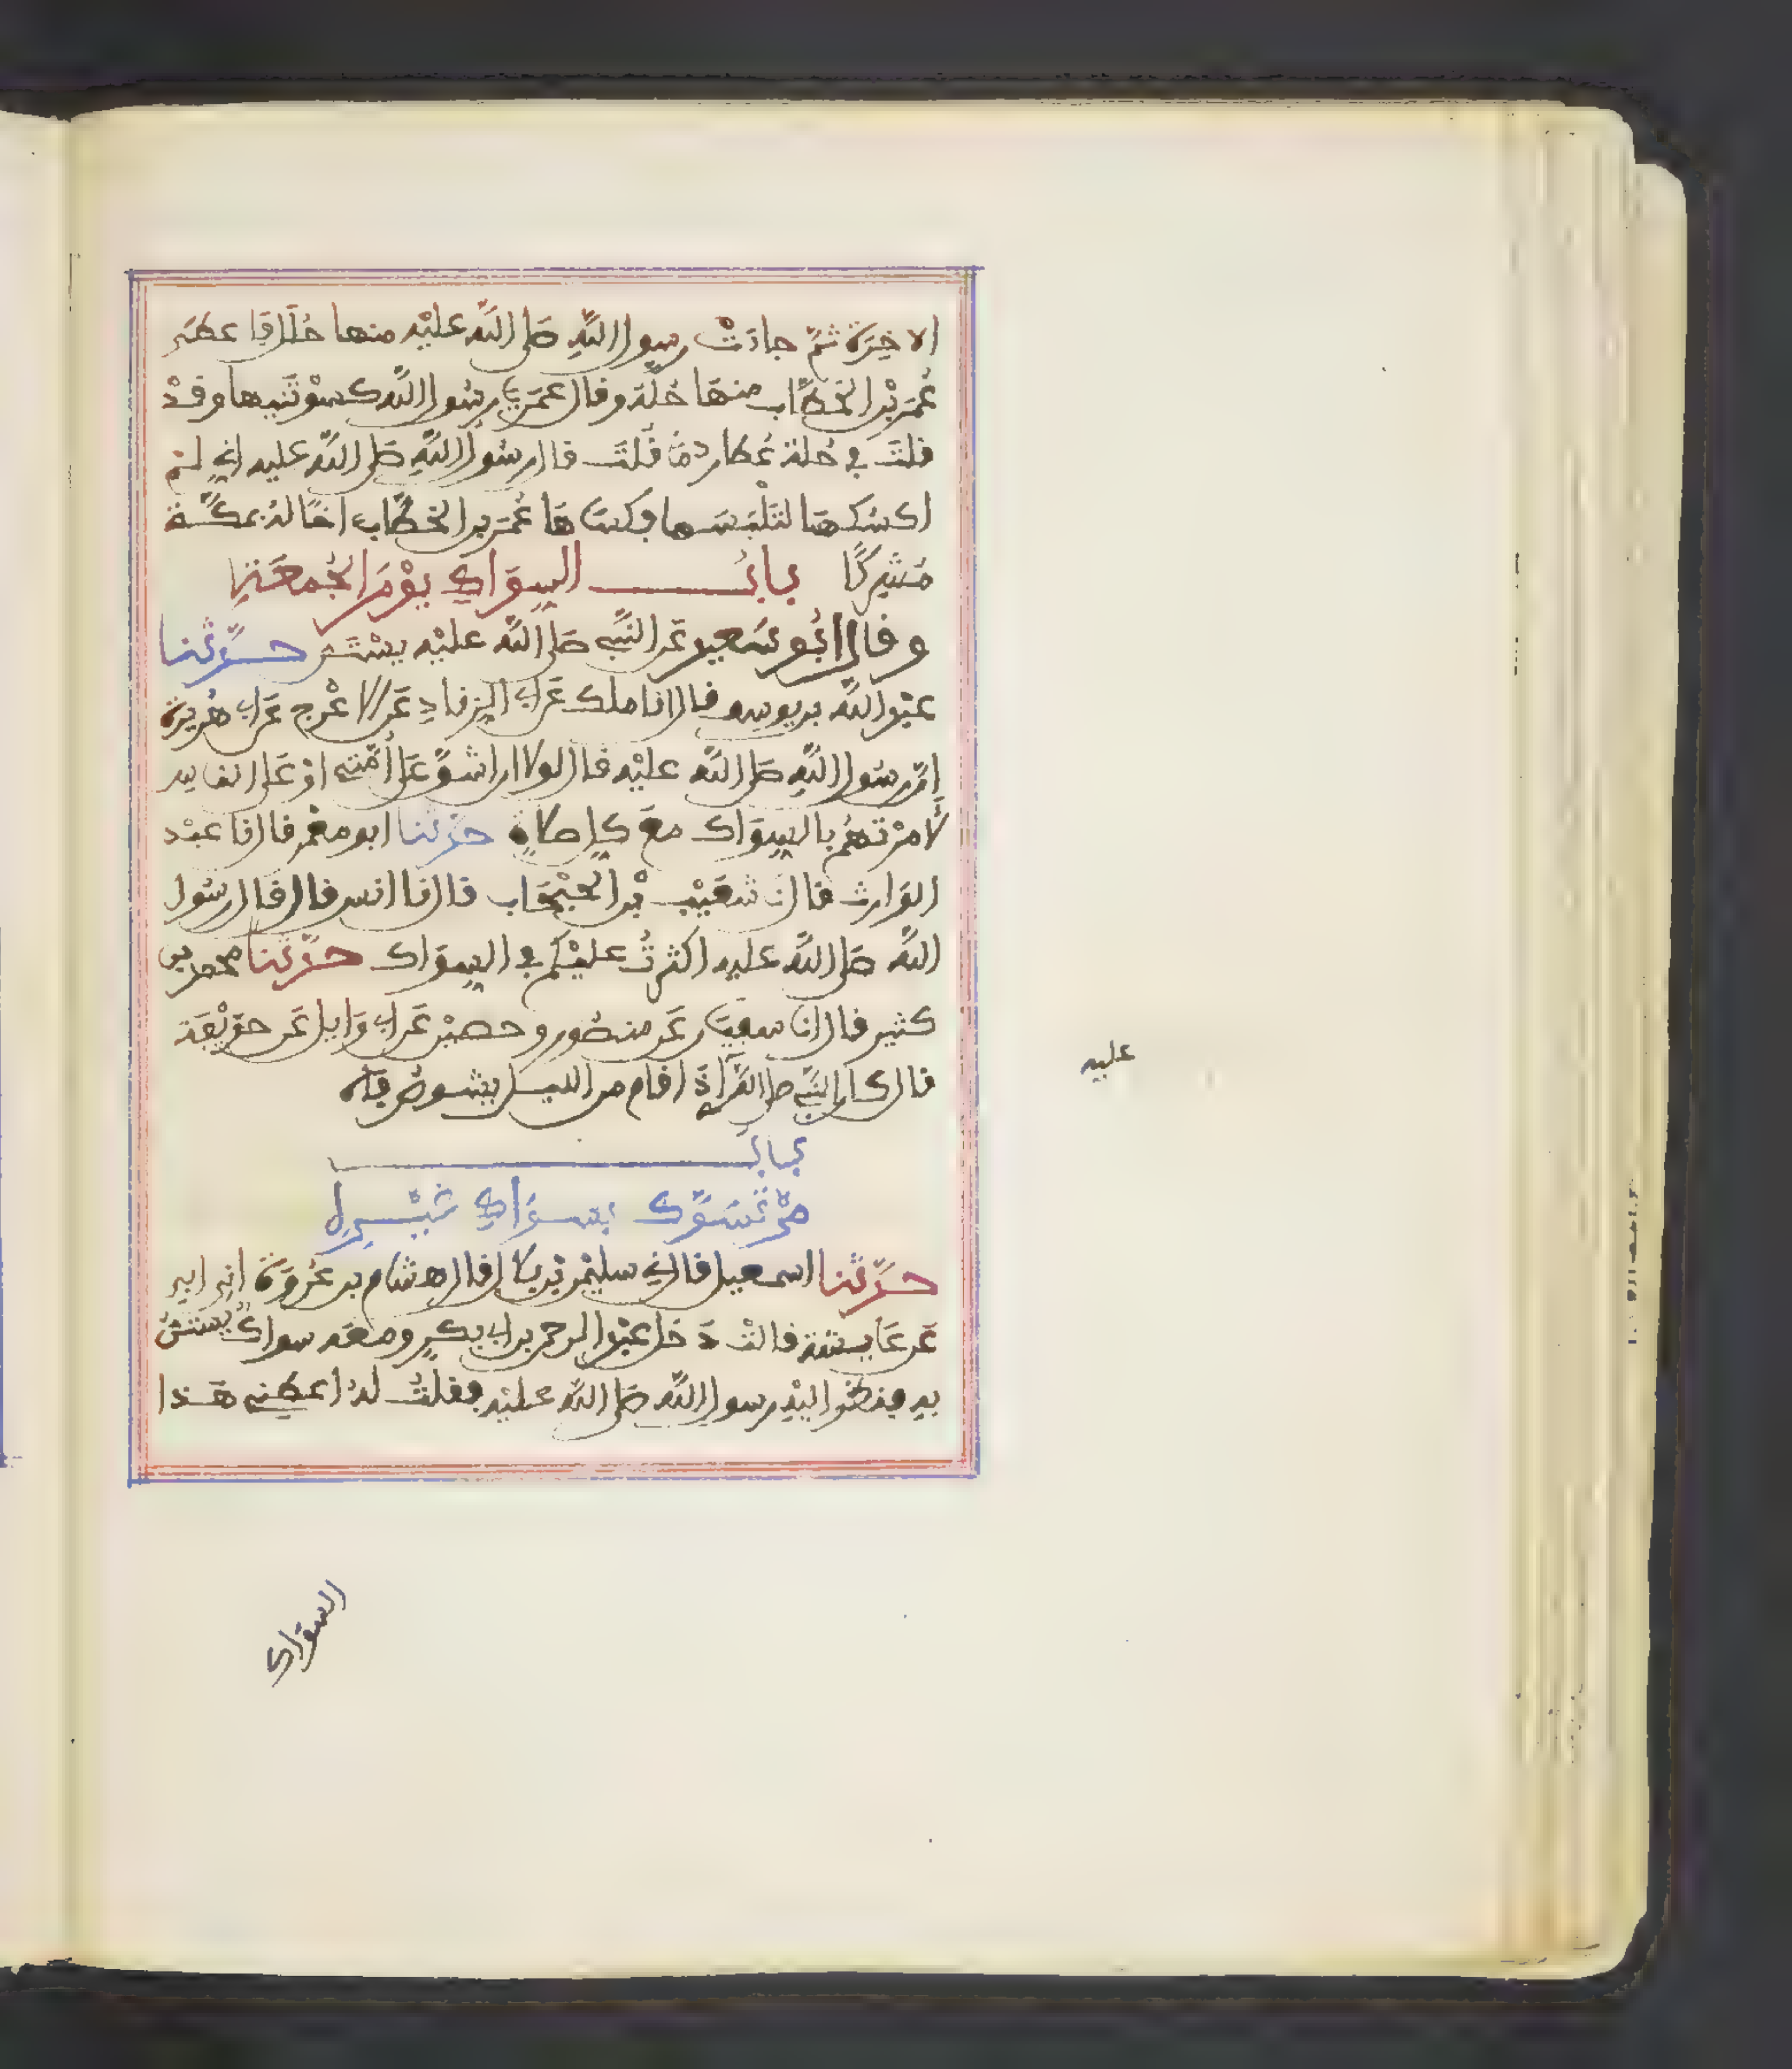 الاخِرَة ثمَّ جاءتْ رسول اللهِ صَلى اللهُ عليْه منها حُلَلٌ فاعطى
عُمَرَ بْن الخطَّاب منهَا حُلَّة وقال عمَر يرسُول الله كسوْتَنِيها وقدْ
قلتَ في حُلة عُطارد مَا قُلتَ قال رسُول اللهِ صَلى اللهُ عليه انِي لم
اكسُكهَا لتَلْبَسَها فكسَاهَا عُمَر بن الخطَّاب اخًا لهُ بمكَّة
مُشركًا بابُ السِوَاكِ يوْمَ الجُمعَةِ
وقال ابُو سَعيد عَن النَّبي صَلى الله عليْه يسْتَن حدَّثنا
عبْد الله بن يوسف قال انا ملك عَن ابي الزناد عَن الاعْرج عَن ابي هُريرة
انَّ رسُول اللهِ صَلى اللهُ عليْه قال لولا ان اشقَّ عَلى أُمَّتي اوْ عَلى الناس
لأمرْتهُم بالسِوَاك معَ كل صلاةٍ حدثنا ابو معْمر قال نا عبْد
الوَارث قال نا شعَيْب بْن الحبْحَاب قال نا انس قال قال رسُول
الله صَلى الله عليه اكثرتُ عليْكم في السِوَاك حدَّثنا محمد بن
كثير قال انَا سفيَان عَن منصُور وحصيْن عَن ابي وَايل عَن حذيْفَة
قال كان النَّبي صلى الله إذَا قام من الليل يشوصُ فاه
عليه
بابُ
مَنْ تَسَوَّك بسوَاكِ غيْرهِ
حدَّثنا اسمعيل قال ني سليمٰن بْن بلال قال هشام بن عُروَة انِي ابي
عَن عَايشة قالتْ دَخَل عبْد الرحمن بن ابي بكرٍ ومعَه سواكٌ يستنُّ
بهِ فنظَر اليْهِ رسول الله صَلى الله عليْه فقلتُ لهُ اعطِني هَذا
السوَاك